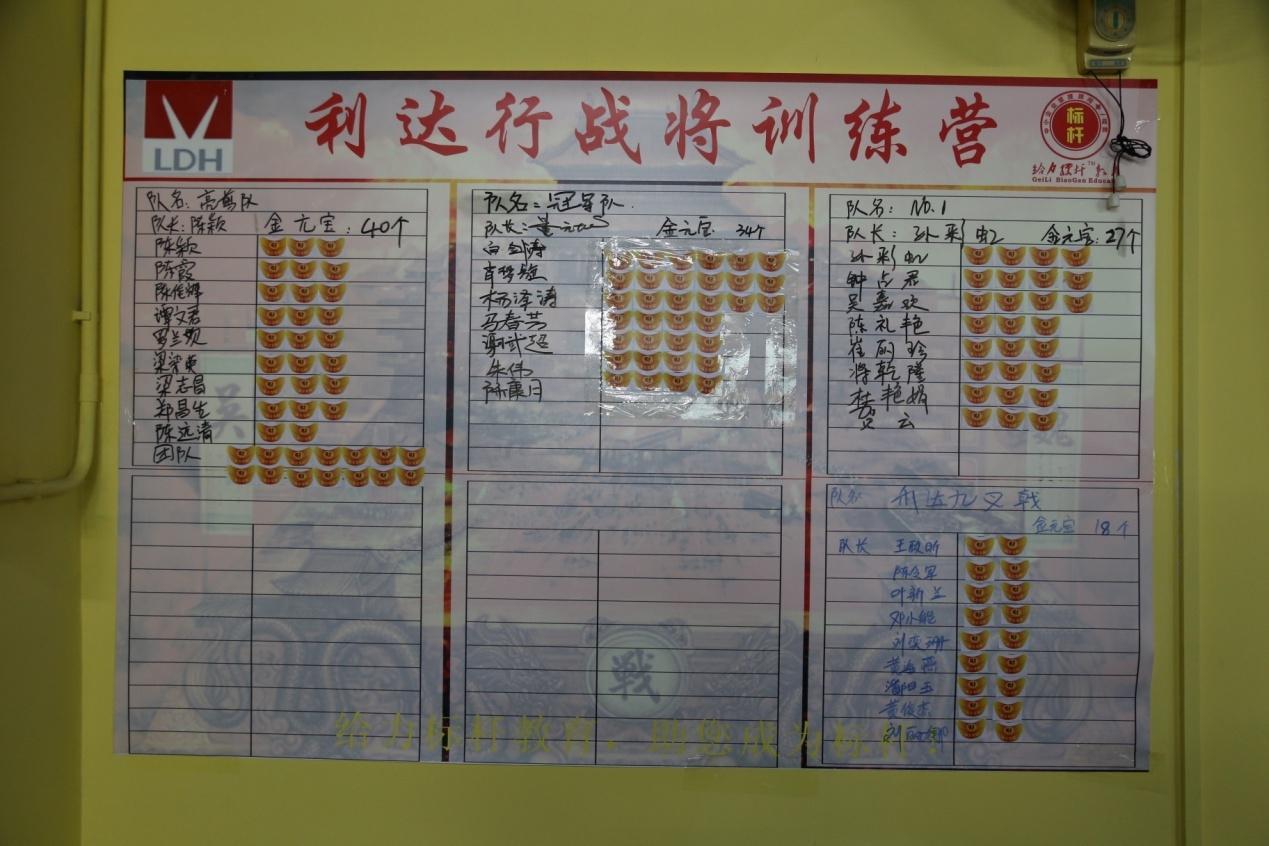 LDH
利达行战将训练营
标杆
给力标杆™教育
GeiLi BiaoGan Educa
队名：高尊队
队长：陈颖 金元宝：40个
陈颖
陈霞
陈佳辉
谭文君
罗兰观
梁荣贞
梁志昌
郑昌生
陈远清
团队
队名：冠军队
队长： 金元宝 34个
白剑涛
肖琼短
杨泽涛
马春芳
谢武超
朱伟
队名：NO.1
队长：孙彩虹 金元宝：27个
孙彩虹
钟占君
吴嘉欢
陈礼艳
崔丽珍
蒋乾隆
杜艳娟
贺云
队名 利达九义戟
金元宝 18个
队长 王政昕
陈令军
叶新兰
邓小能
刘奕珊
黄海燕
潘阳玉
黄俊杰
刘丽娜
吴
魏
戰
给力标杆教育，助您成为标杆！